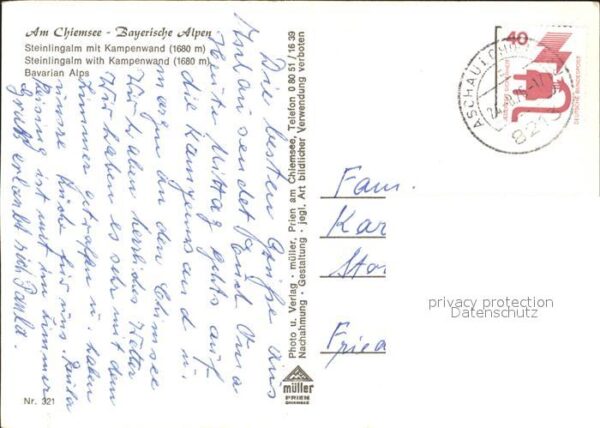 Am Chiemsee - Bayerische Alpen
Steinlingalm mit Kampenwand (1680 m)
Steinling with Kampenwand (1680 m)
Bavarian Alps
Die besten Grüße aus
sendet Euch Oma
Heute Mittag gehts auf
die Kampenwand u.
morgen an den Chiemsee
Wir haben herrliches Wetter
Wir haben es sehr mit dem
Zimmer getroffen u. haben
Küche für uns.
ist mit im Zimmer
Grüße erlaubt sich Paula.
Photo u. Verlag · müller, Prien am Chiemsee, Telefon 0 80 51 / 16 39
Nachahmung · Gestaltung · jegl. Art bildlicher Verwendung verboten
müller
PRIEN
CHIEMSEE
Nr. 321
40
DEUTSCHE BUNDESPOST
ASCHAU I. CHIEMGAU
Fam.
Kar
Fried
privacy protection
Datenschutz